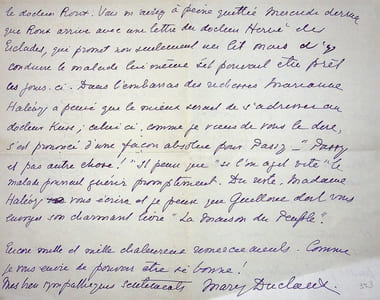 le docteur Roux. Vous m'aviez à peine quittée Mercredi dernier
que Roux arrive avec une lettre du docteur Hervé des
Eclades, qui promet non seulement un lit mais d'y
conduire le malade lui même s'il pouvait être prêt
ces jours-ci. Dans l'embarras des richesses Marianne
Halévy a pensé que le mieux serait de s'adresser au
docteur Kuss; celui ci, comme je viens de vous le dire,
s'est prononcé d'une façon absolue pour Passy – "Passy
et pas autre chose!" Il pense que "si l'on agit vite" le
malade pourrait guérir promptement. Du reste, Madame
Halévy va vous écrire et je pense que Guilloux doit vous
envoyer son charmant livre "La Maison du Peuple".
Encore mille et mille chaleureux remerciements. Comme
je vous envie de pouvoir être si bonne!
Mes bien sympathiques sentiments Mary Duclaux.